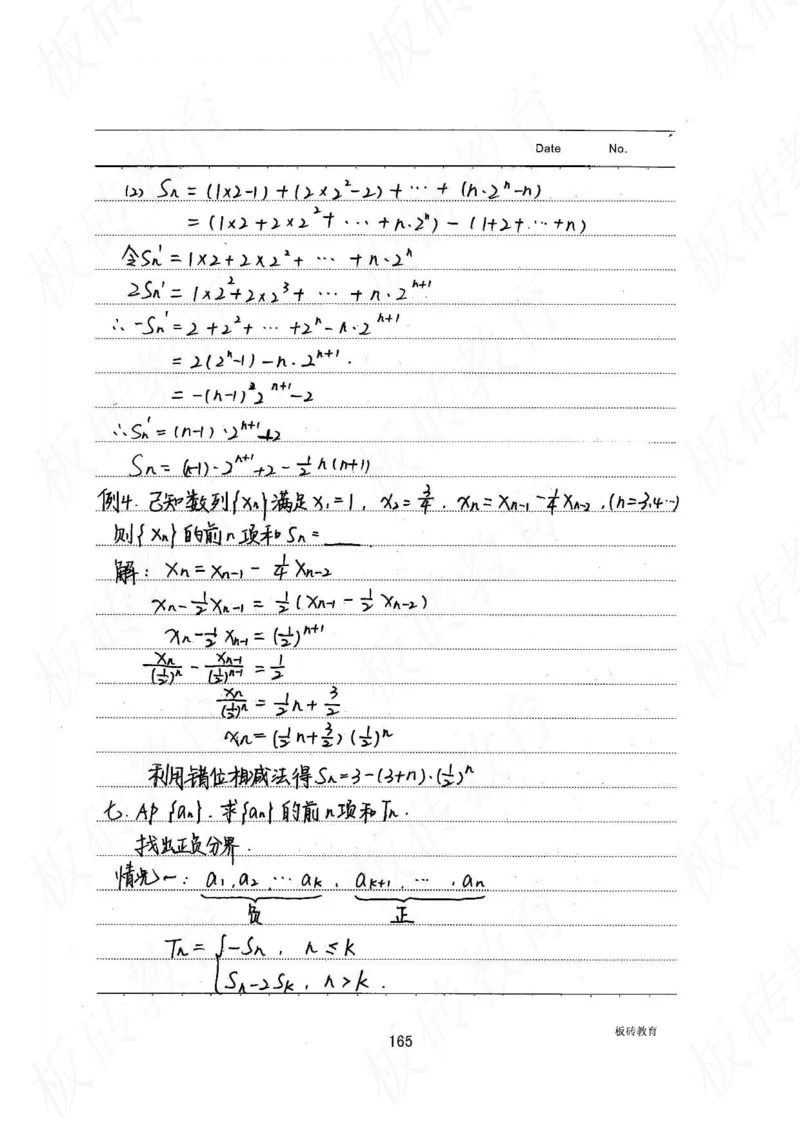 Date No.
(2) Sn = (1×2-1) + (2×2²-2) + ⋯ + (n·2ⁿ-n)
= (1×2 + 2×2² + ⋯ + n·2ⁿ) - (1+2+⋯+n)
令Sn' = 1×2 + 2×2² + ⋯ + n·2ⁿ
2Sn' = 1×2² + 2×2³ + ⋯ + n·2ⁿ⁺¹
∴ -Sn' = 2 + 2² + ⋯ + 2ⁿ - n·2ⁿ⁺¹
= 2(2ⁿ-1) - n·2ⁿ⁺¹.
= -(n-1) 2ⁿ⁺¹ - 2
∴ Sn' = (n-1)·2ⁿ⁺¹ + 2
Sn = (n-1)·2ⁿ⁺¹ + 2 - 1/2 n(n+1)
例4. 已知数列{Xn}满足X₁=1, X₂=3/4, Xn=Xn-1 - 1/4 Xn-2, (n=3,4⋯)
则{Xn}的前n项和Sn=____.
解: Xn = Xn-1 - 1/4 Xn-2
Xn - 1/2 Xn-1 = 1/2 (Xn-1 - 1/2 Xn-2)
Xn - 1/2 Xn-1 = (1/2)ⁿ⁺¹
Xn/(1/2)ⁿ - Xn-1/(1/2)ⁿ⁻¹ = 1/2
Xn/(1/2)ⁿ = 1/2 n + 3/2
Xn = (1/2 n + 3/2) (1/2)ⁿ
利用错位相减法得 Sn = 3 - (3+n)·(1/2)ⁿ
七. AP {an}. 求{an}的前n项和Tn.
找出正负分界.
情况一: a₁, a₂ ⋯ ak, ak+1, ⋯, an
负 正
Tn = { -Sn, n ≤ k
Sn - 2Sk, n > k.
165
板砖教育